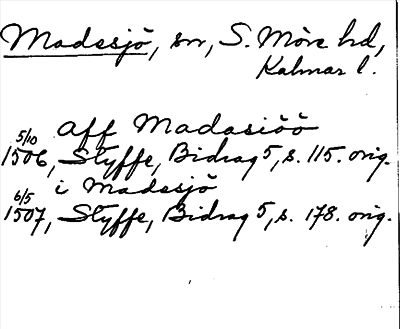 Madesjö, sn, S. Möre hd,
Kalmar l.
aff Madasiöö
5/10
1506, Styffe, Bidrag 5, s. 115. orig.
i Madesjö
6/5
1507, Styffe, Bidrag 5, s. 178. orig.